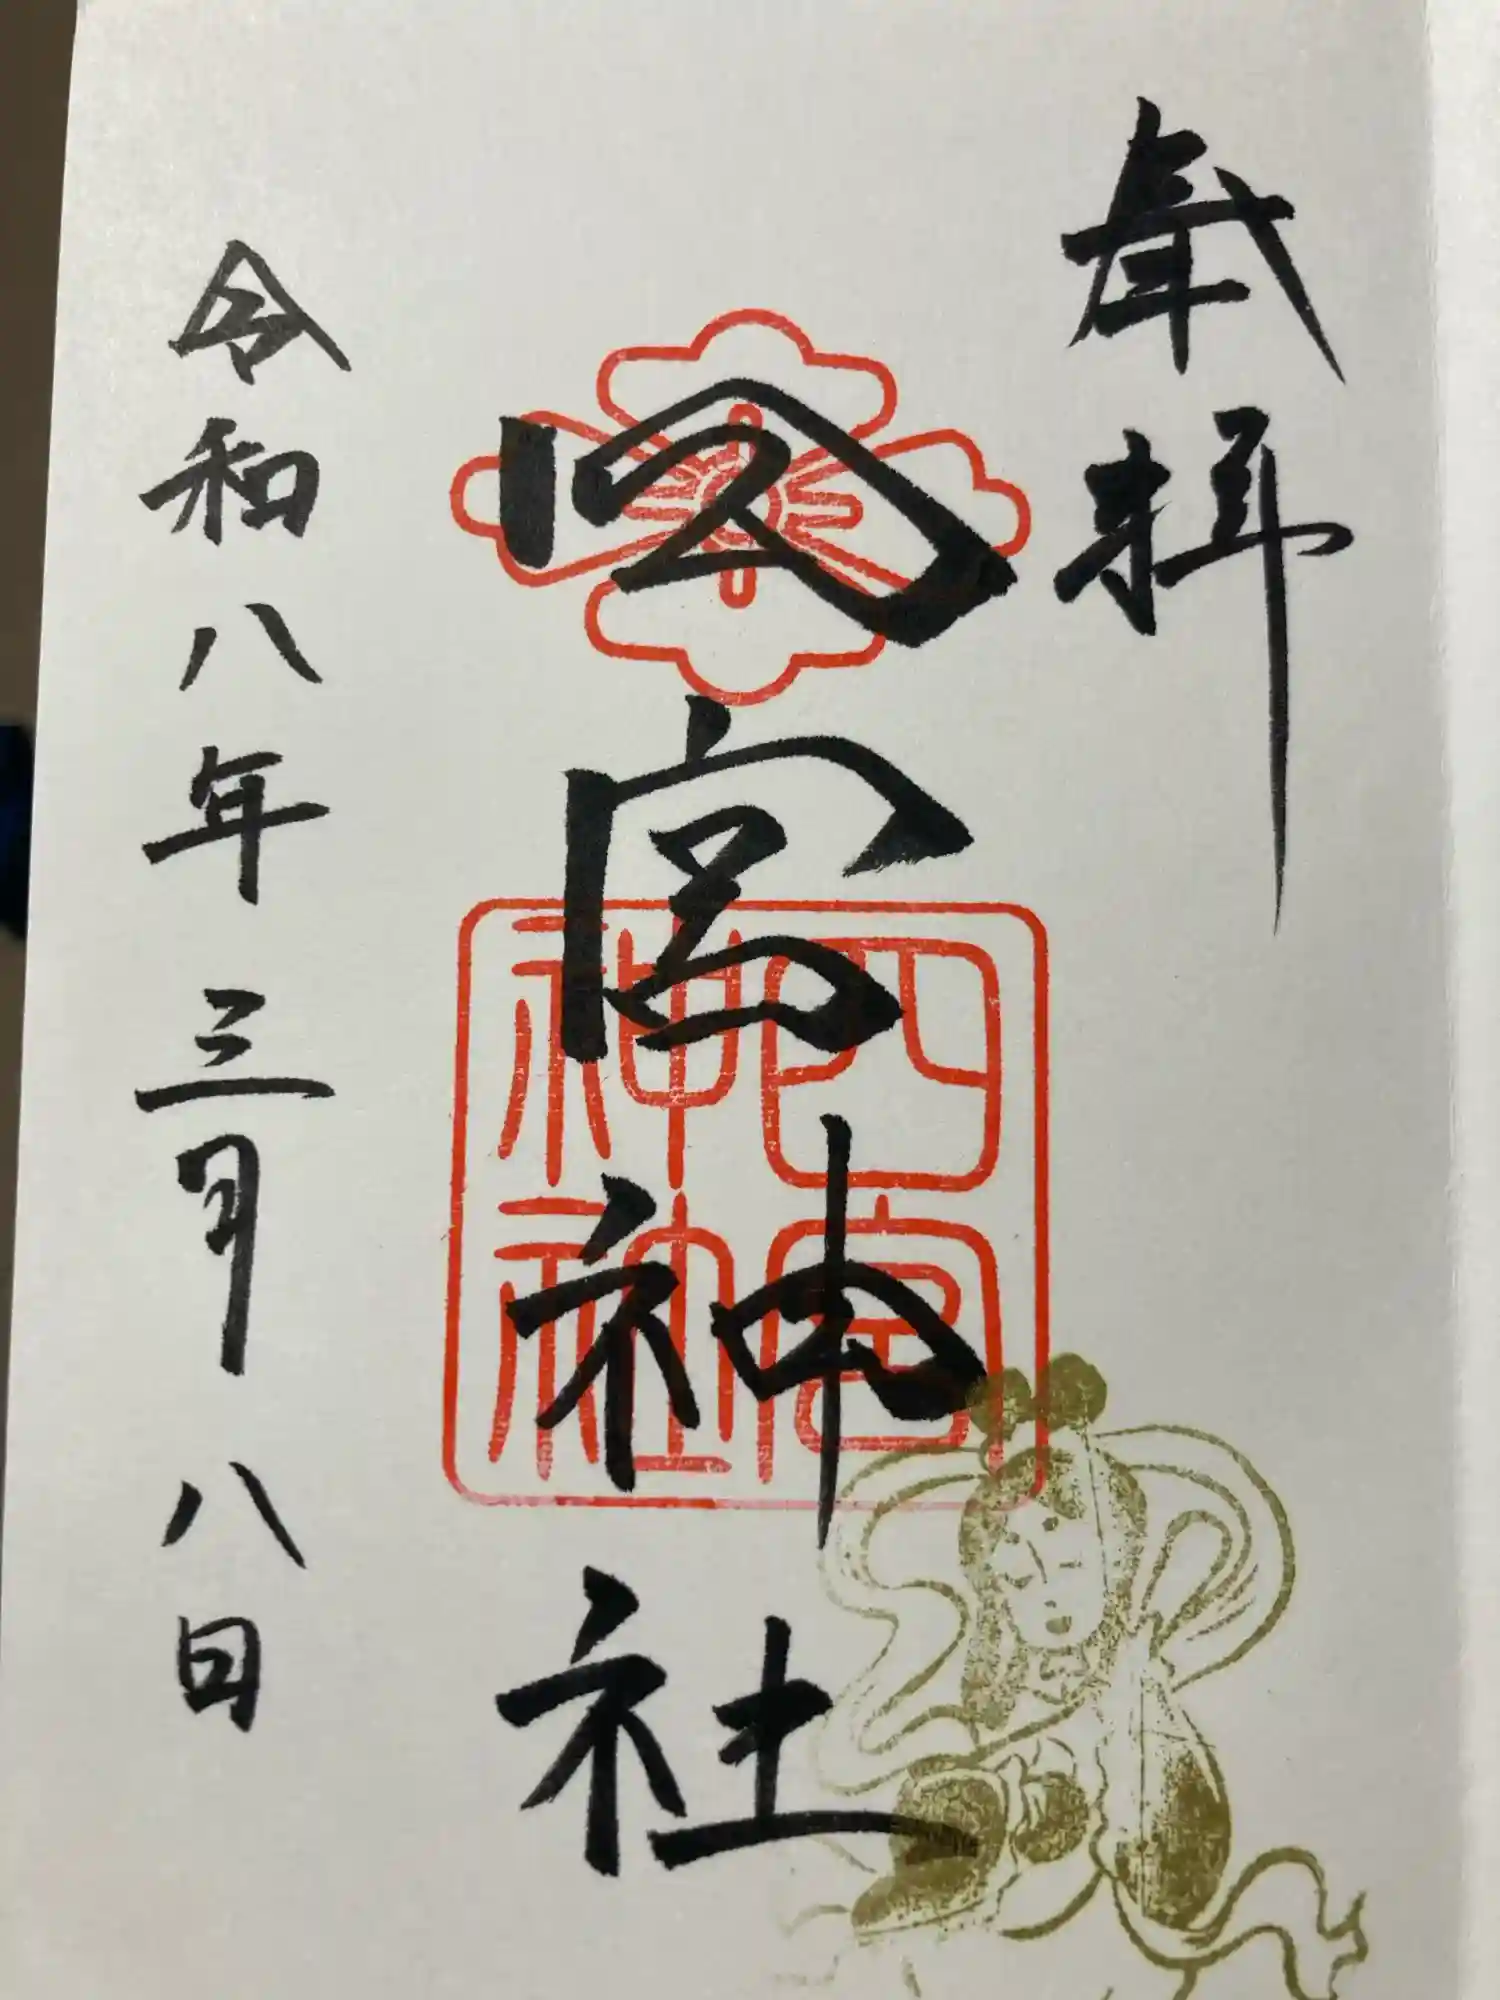 奉拝
四宮神社
四宮神社
令和八年三月八日